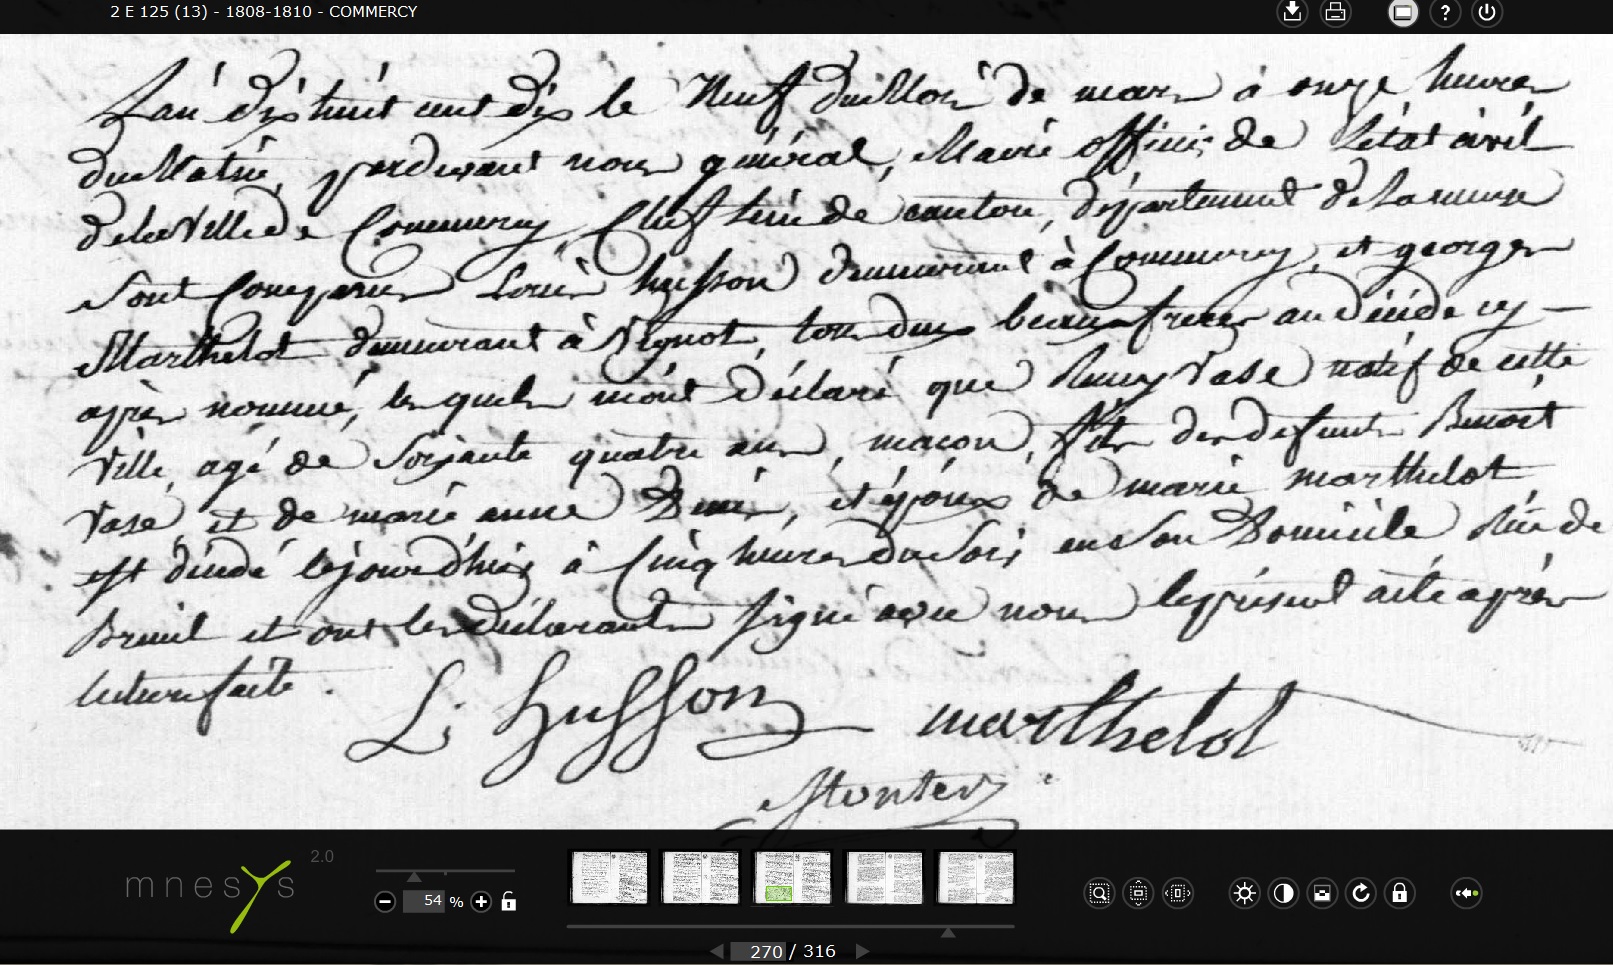 2 E 125 (13) - 1808-1810 - COMMERCY
L'an dix huit cent dix le Neuf du Mois de mars à onze heures
du Matin, pardevant nous général, Maire officier de L'état civil
de la Ville de Commercy, Chef lieu de canton, département de La meuse
Sont Comparus Louis husson demeurant à Commercy, et george
Marthelot demeurant à Vignot, tous deux beaux freres au décédé cy -
après nommé, les quels m'ont Déclaré que Remy Vase natif de cette
Ville, agé de Soixante quatre ans, macon, fils des defunts Benoit
Vase et de marie anne, et époux de marie marthelot
est décédé cejourd'huy à Cinq heures du Soir en son Domicile Rue de
Breuil et ont les déclarants signé avec nous le présent acte après
lecture faite.
L. Husson marthelot
mnesys 2.0
54 %
270 / 316